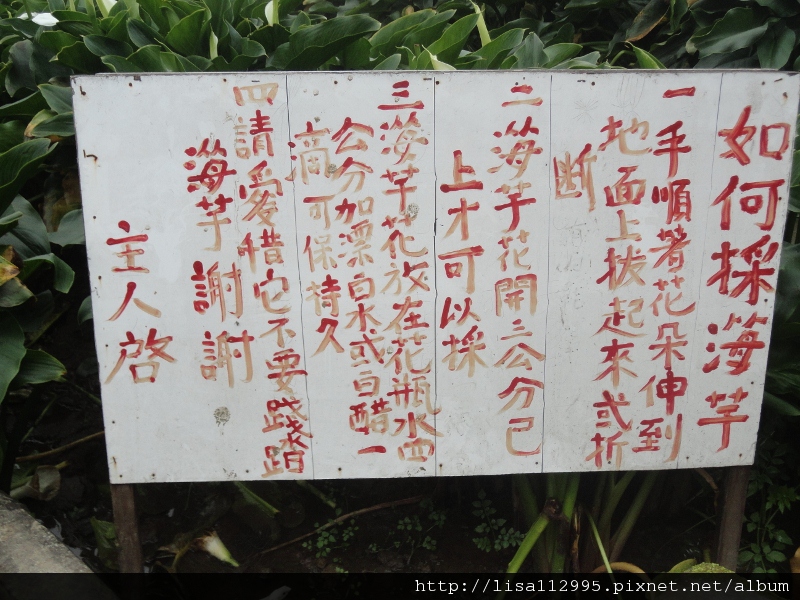 如何採海芋
一手順著花朵伸到
地面上拔起來或折
断
二海芋花開三公分已
上才可以採
三海芋花放在花瓶水四
公分加漂白水或白醋一
滴可保持久
四請愛惜它不要踐踏
海芋謝謝
主人啓
http://lisa112995.pixnet.net/album